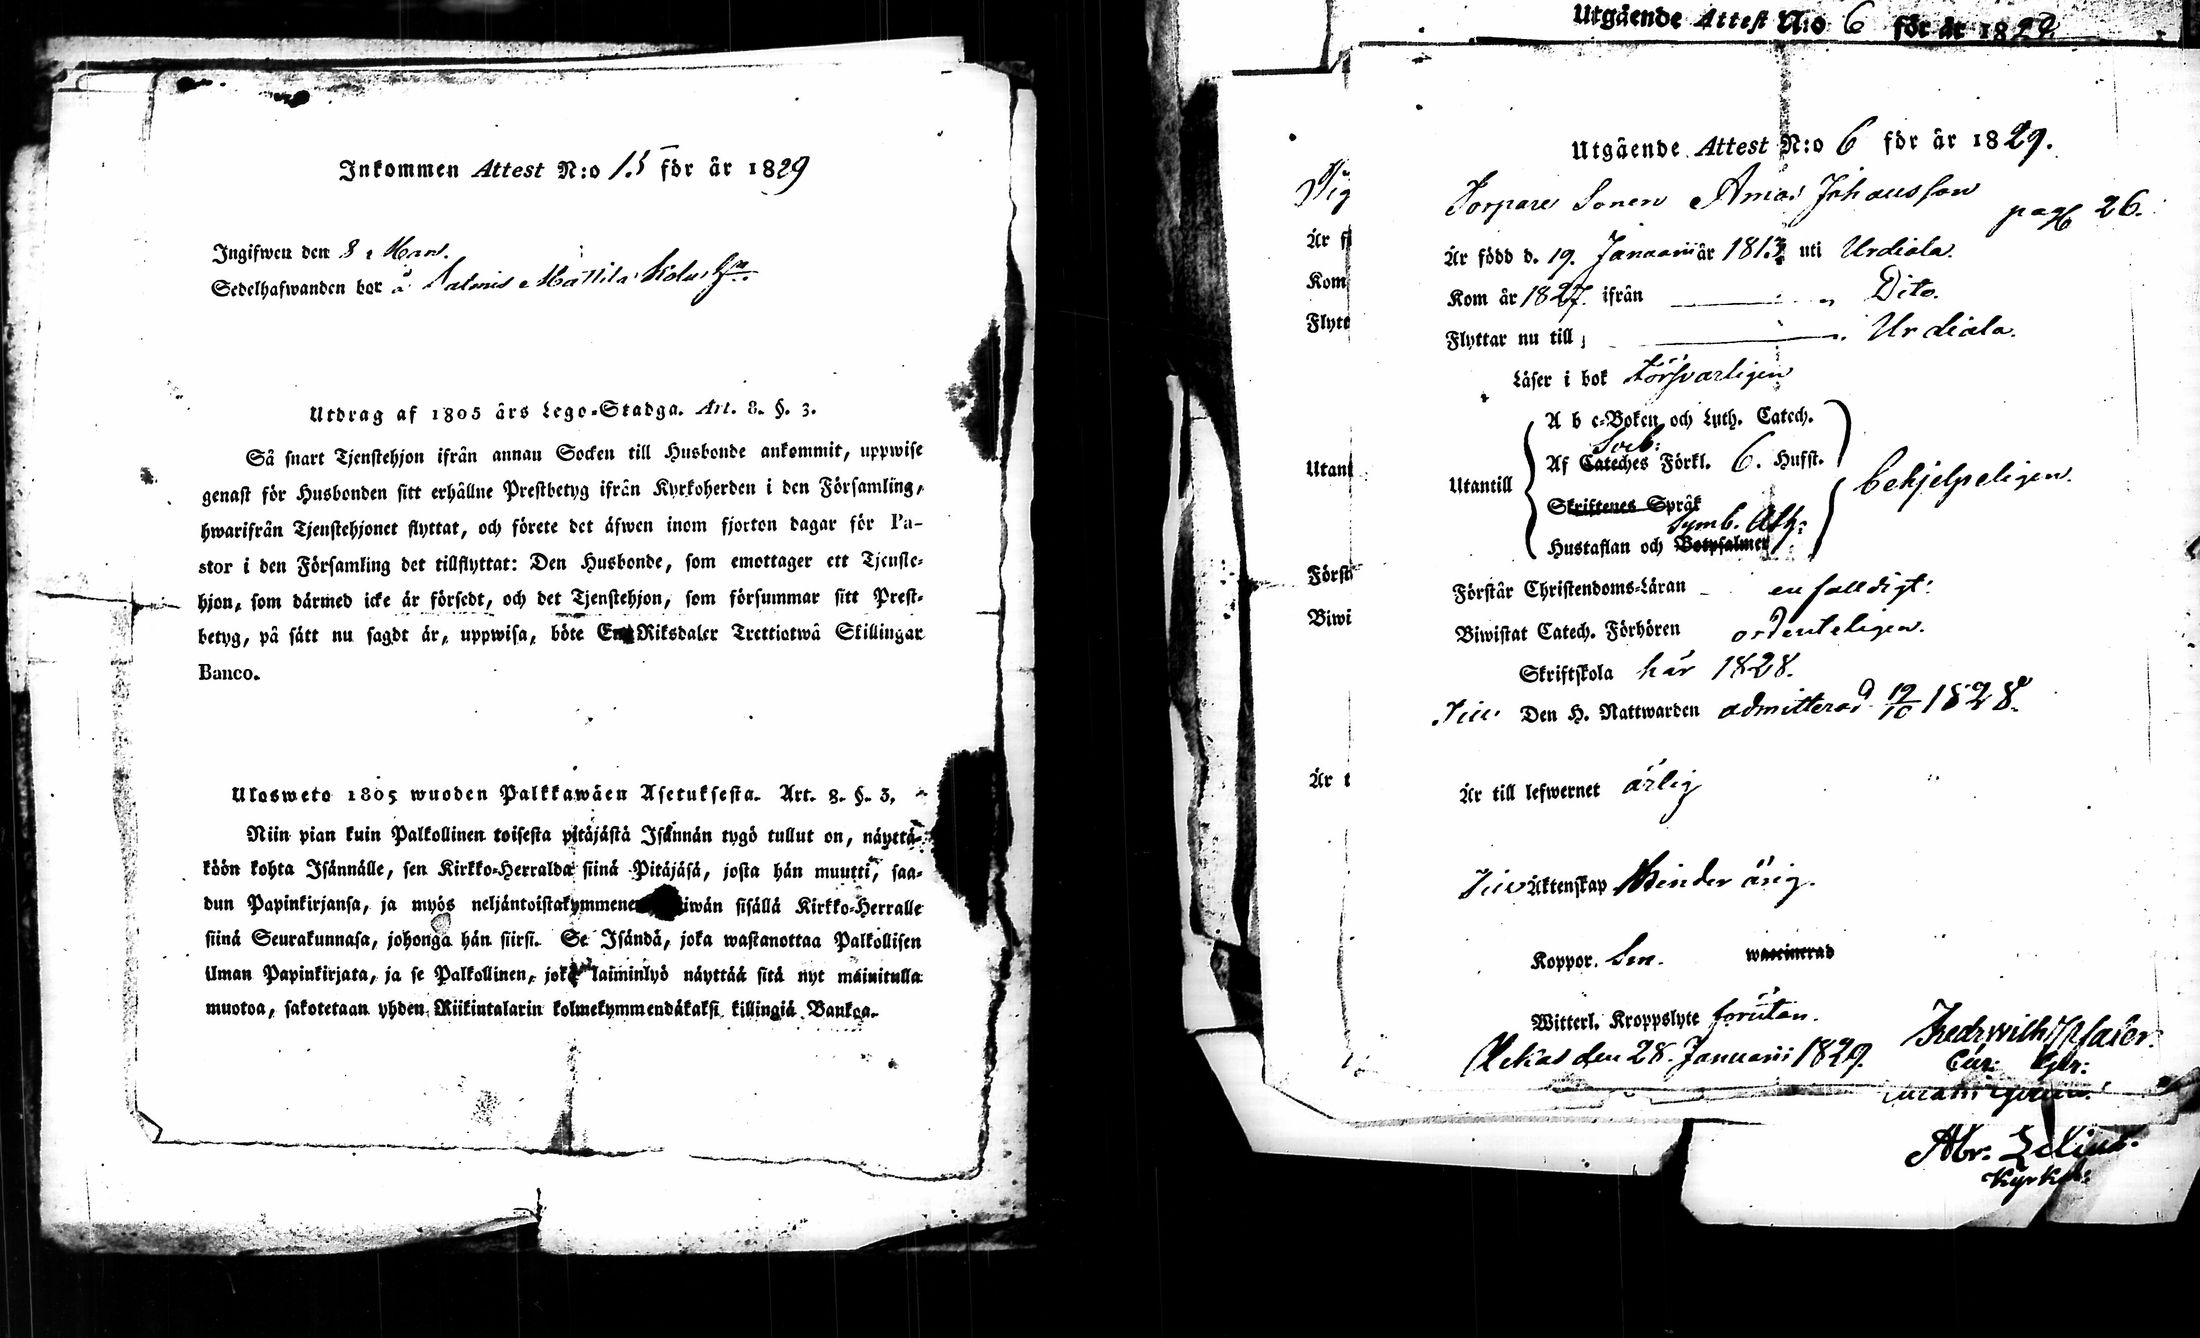 Inkommen Attest N:o 15 för år 1829
Ingifwen den 8 Mars.
Sedelhafwanden bor å
Utdrag af 1805 års Lego-Stadga. Art. 8. §. 3.
Så snart Tjenstehjon ifrån annan Socken till Husbonde ankommit, uppwise
genast för Husbonden sitt erhållne Prestbetyg ifrån Kyrkoherden i den Församling,
hwarifrån Tjenstehjonet flyttat, och förete det äfwen inom fjorton dagar för Pa-
stor i den Församling det tillflyttat: Den Husbonde, som emottager ett Tjenste-
hjon, som därmed icke är försedt, och det Tjenstehjon, som försummar sitt Prest-
betyg, på sätt nu sagdt är, uppwisa, böte En Riksdaler Trettiotwå Skillingar
Banco.
Ulosweto 1805 wuoden Palkkawäen Asetuksesta. Art. 8. §. 3.
Niin pian kuin Palkollinen toisesta pitäjästä Isännän tygö tullut on, näyttä-
köön kohta Isännälle, sen Kirkko-Herralda siinä Pitäjäsä, josta hän muutti, saa-
dun Papinkirjansa, ja myös neljäntoistakymmenen päiwän sisällä Kirkko-Herralle
siinä Seurakunnasa, johonga hän siirsi. Se Isändä, joka wastanottaa Palkollisen
ilman Papinkirjata, ja se Palkollinen, joka laiminlyö näyttää sitä nyt mainitulla
muotoa, sakotetaan yhden Riikintalarin kolmekymmendäkaksi killingiä Bankoa.
Utgående Attest N:o 6 för år 1829
Utgående Attest N:o 6 för år 1829.
Torpare Sonen Johansson
pag 26.
Är född d. 19. Januarii år 1813 uti Urdiala.
Kom år 1827. ifrån Dito.
Flyttar nu till Urdiala.
Läser i bok försvarligen
A b c-Boken och Luth. Catech.
Sveb:
Af Cateches Förkl. 6. Hufst.
Utantill
behjelpeligen.
Skriftenes Språk
Symb. Ath:
Hustaflan och Botpsalmer
Förstår Christendoms-Läran enfalldigt.
Biwistat Catech. Förhören ordenteligen.
Skriftskola här 1828.
Till Den H. Nattwarden admitterad d 19/10 1828.
Är till lefwernet ärlig
Till Äktenskap Minder årig.
Koppor. waccinerad
Witterl. Kroppslyte förutan.
den 28. Januarii 1829.
Fredr Wilh
Abr.
Är f
Kom
Flytt
Utant
Först
Biwi
Är t